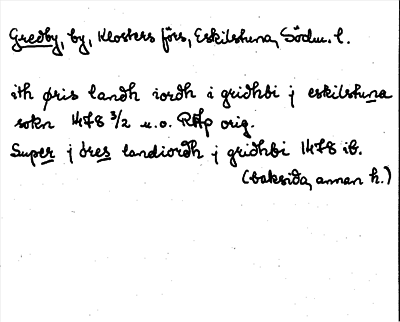 Gredby, by, Klosters förs, Eskilstuna, Södm. l.
ith øris landh iordh i gridhbi j eskilstuna
sokn 1478 3/2 u.o. RAp orig.
Super j óres landiordh j gridhbi 1478 ib.
(baksida, annan h.)